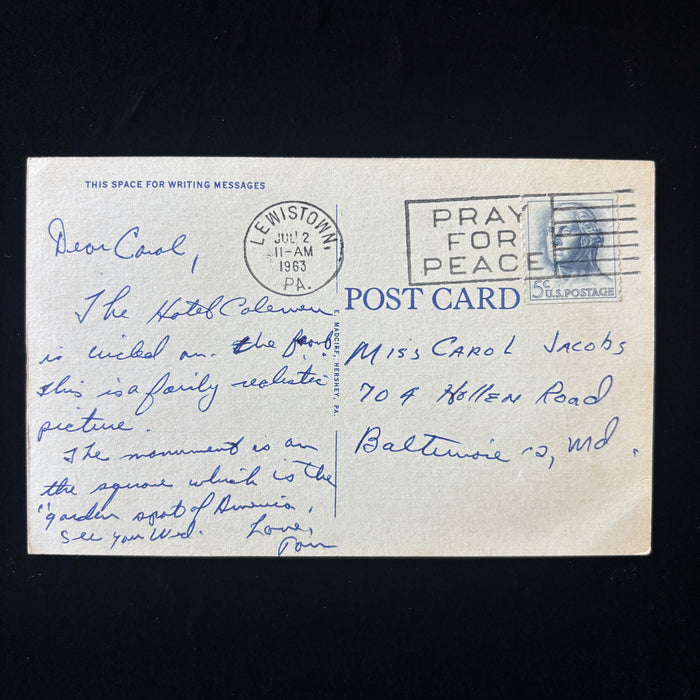 THIS SPACE FOR WRITING MESSAGES
LEWISTOWN,
JUL 2
11-AM
1963
PA.
PRAY
FOR
PEACE
5¢ U.S. POSTAGE
POST CARD
E. MADCIFF, HERSHEY, PA.
Dear Carol,
The Hotel Coleman
is circled on the front
this is a fairly realistic
picture.
The monument is on
the square which is the
"garden spot of America,
See you Wed. Love,
Tom
Miss Carol Jacobs
704 Hollen Road
Baltimore 12, Md.